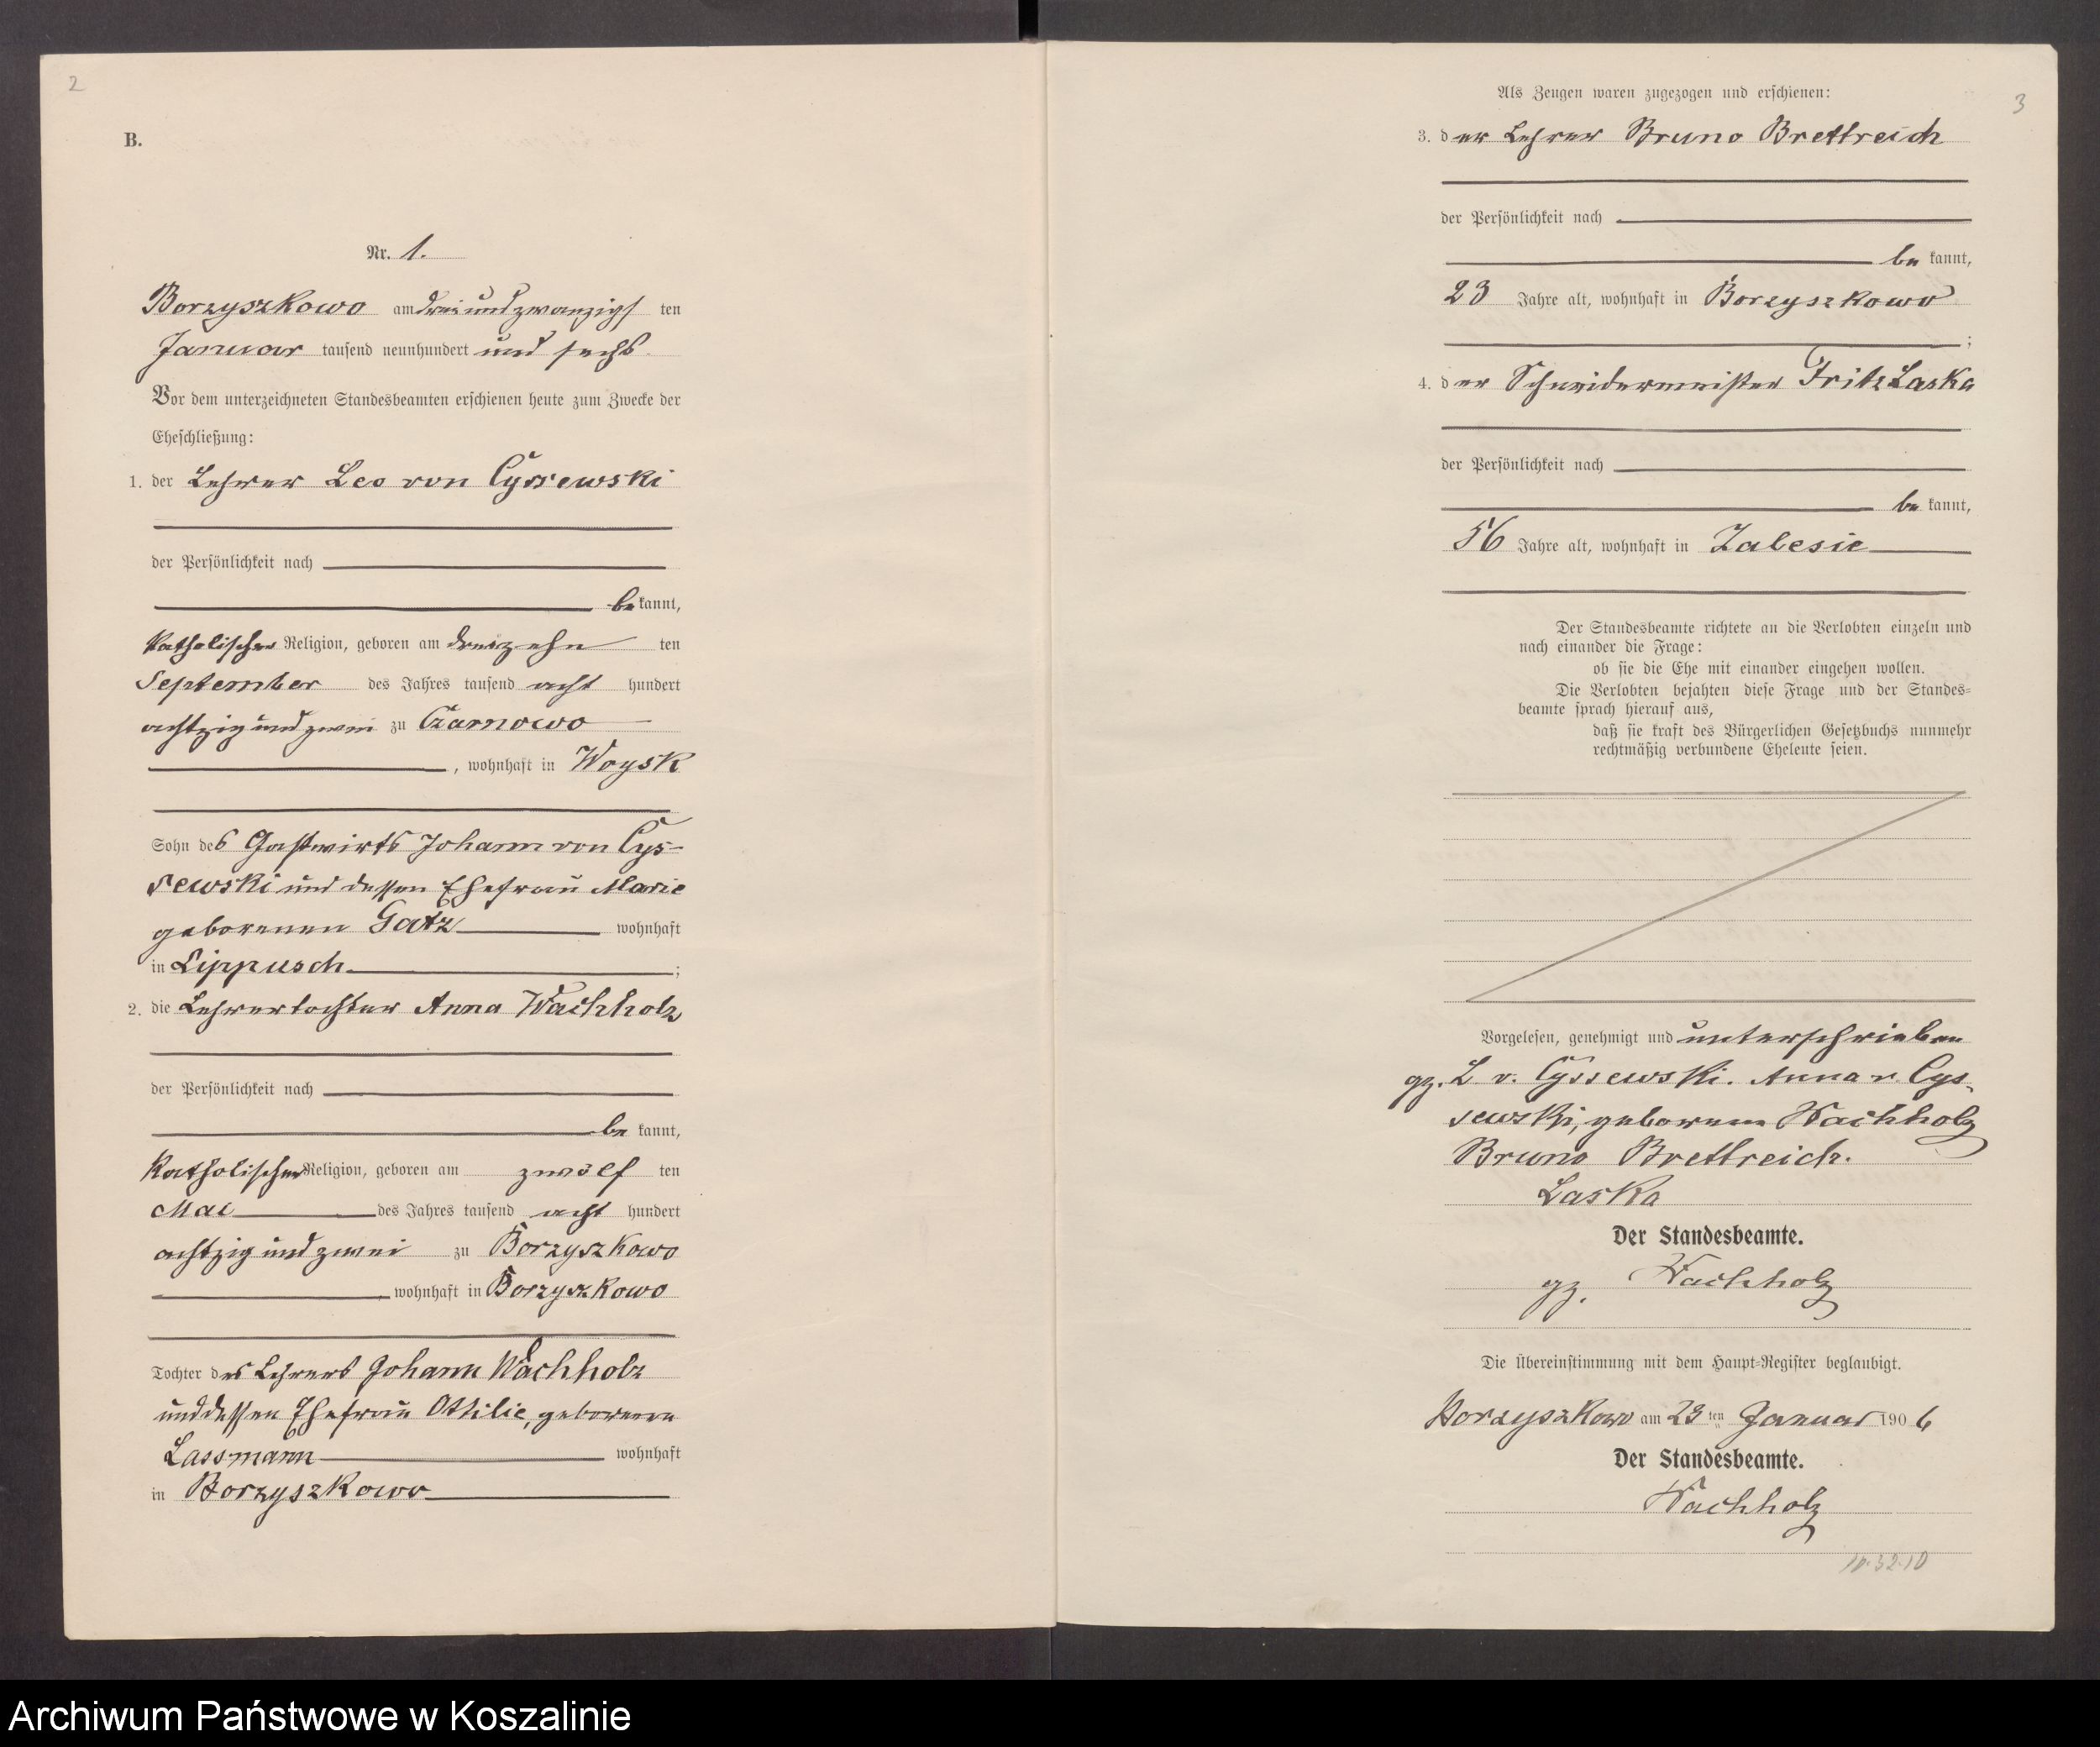 2
B.
Nr. 1.
Borzyszkowo am dreiundzwanzigsten
Januar tausend neunhundert und sechs
Vor dem unterzeichneten Standesbeamten erschienen heute zum Zwecke der
Eheschließung:
1. der Lehrer Leo von Cyssewski
der Persönlichkeit nach
bekannt,
katholischer Religion, geboren am dreizehnten
September des Jahres tausend achthundert
achtzig und zwei zu Czarnowo
, wohnhaft in Woysk
Sohn des Gastwirts Johann von Cys-
sewski und dessen Ehefrau Marie
geborenen Gatz wohnhaft
in Lippusch;
2. die Lehrertochter Anna Wachholz
der Persönlichkeit nach
bekannt,
katholischer Religion, geboren am zwölften
Mai des Jahres tausend achthundert
achtzig und zwei zu Borzyszkowo
, wohnhaft in Borzyszkowo
Tochter des Lehrers Johann Wachholz
und dessen Ehefrau Ottilie, geborenen
Lassmann wohnhaft
in Borzyszkowo
3
Als Zeugen waren zugezogen und erschienen:
3. der Lehrer Bruno Brettreich
der Persönlichkeit nach
bekannt,
23 Jahre alt, wohnhaft in Borzyszkowo
;
4. der Schneidermeister Fritz Laska
der Persönlichkeit nach
bekannt,
56 Jahre alt, wohnhaft in Zalesie
Der Standesbeamte richtete an die Verlobten einzeln und
nach einander die Frage:
ob sie die Ehe mit einander eingehen wollen.
Die Verlobten bejahten diese Frage und der Standes-
beamte sprach hierauf aus,
daß sie kraft des Bürgerlichen Gesetzbuchs nunmehr
rechtmäßig verbundene Eheleute seien.
Vorgelesen, genehmigt und unterschrieben
gz. L v. Cyssewski. Anna v. Cys-
sewski, geborene Wachholz
Bruno Brettreich.
Laska
Der Standesbeamte.
gz. Wachholz
Die Übereinstimmung mit dem Haupt-Register beglaubigt.
Borzyszkowo am 23ten Januar 1906
Der Standesbeamte.
Wachholz
Archiwum Państwowe w Koszalinie